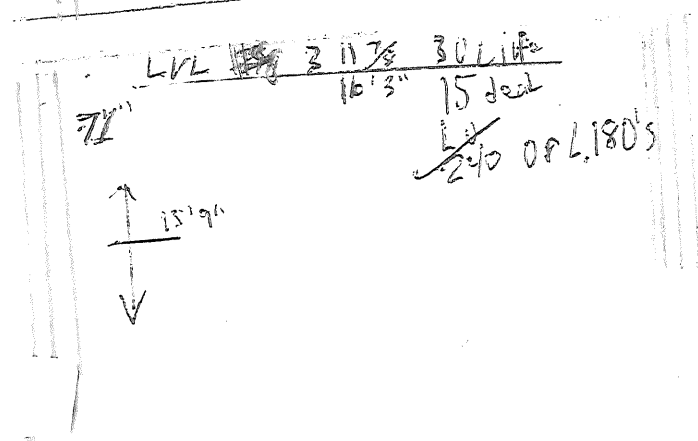 LVL 3 11 7/8 30 Life
16'3" 15 dead
71"
L/240 OR L.180's
15'9"